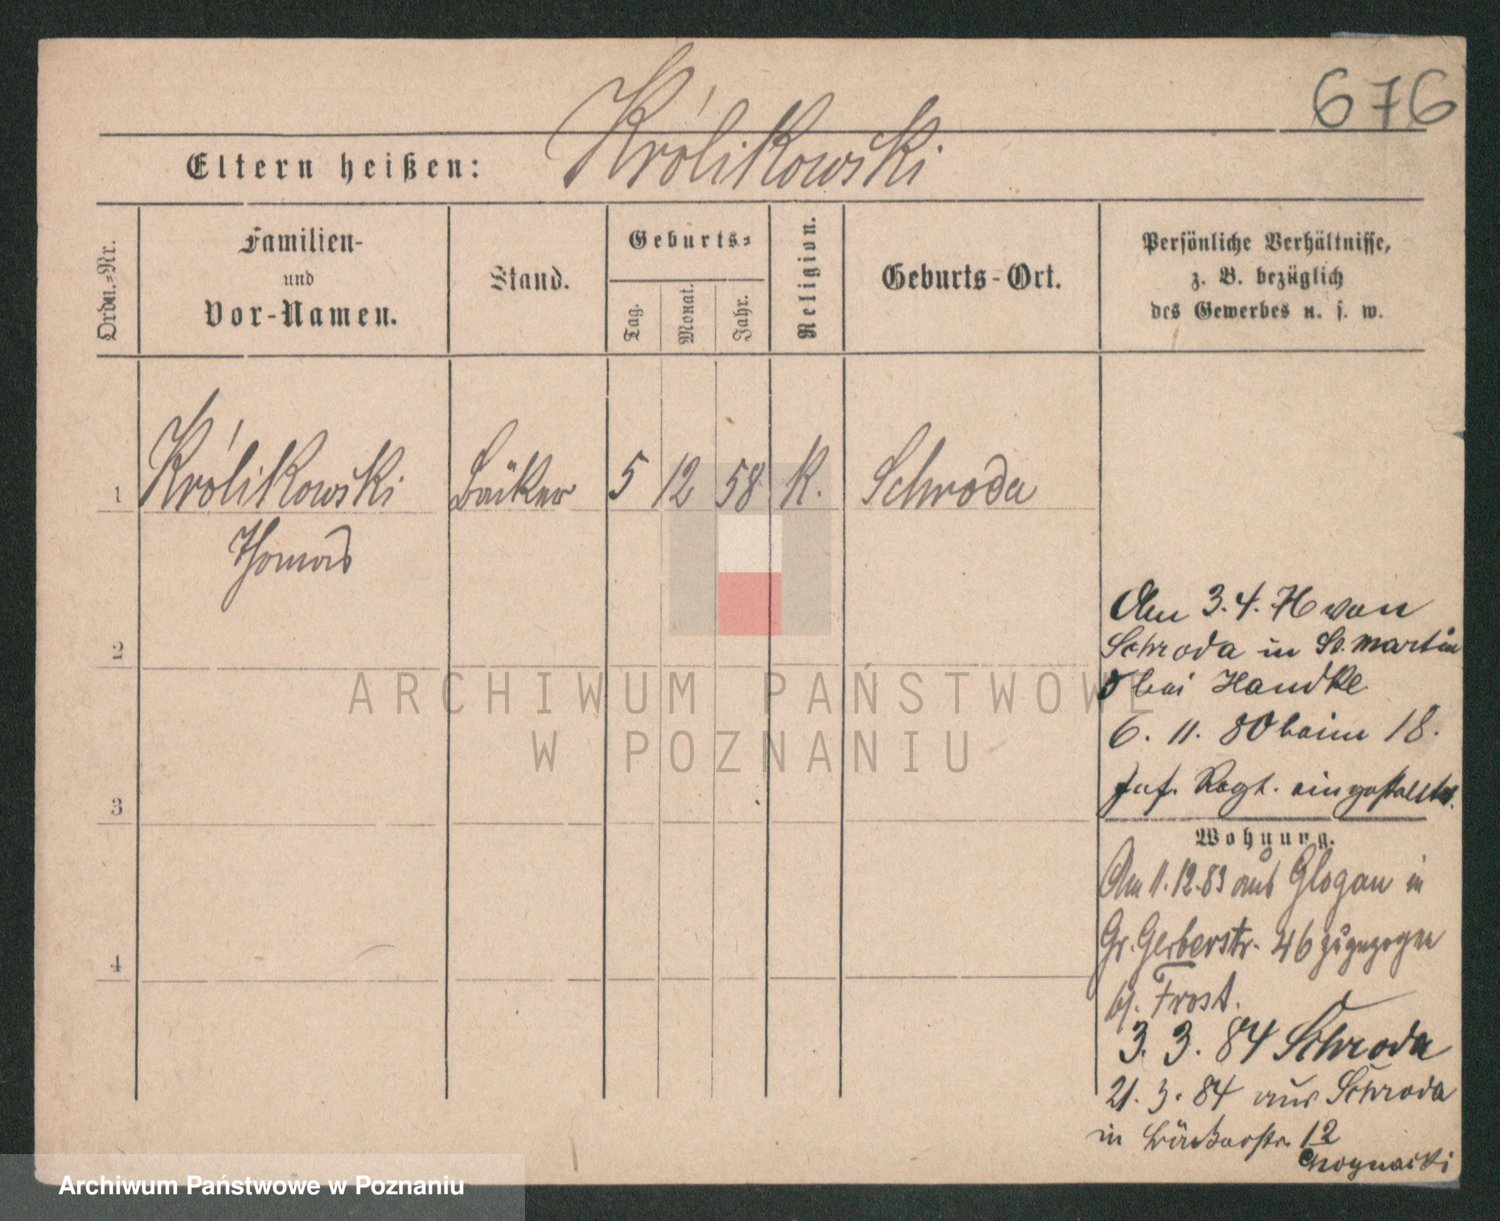 676
Królikowski
Eltern heißen:
Ordn.-Nr.
Familien-
und
Vor-Namen.
Stand.
Geburts-
Tag.
Monat.
Jahr.
Religion.
Geburts-Ort.
Persönliche Verhältnisse,
z. B. bezüglich
des Gewerbes u. s. w.
1 Królikowski Bäcker 5 12 58 K. Schroda
Thomas
2
3
4
Am 3.4.76 von
Schroda in St. Martin
8 bei Handke
6. 11. 80 beim 18.
Inf. Regt. eingestellt.
Wohnung.
Am 1.12.83 aus Glogau in
Gr. Gerberstr. 46 zugezogen
bj. Frost.
3. 3. 84 Schroda
21. 3. 84 aus Schroda
in Bäckerstr. 12
ARCHIWUM PAŃSTWOWE
W POZNANIU
Archiwum Państwowe w Poznaniu